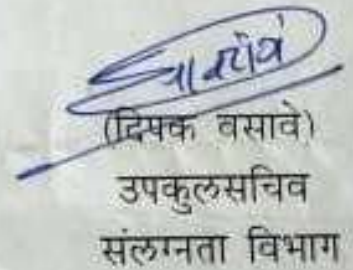 (दिपक वसावे)
उपकुलसचिव
संलग्नता विभाग